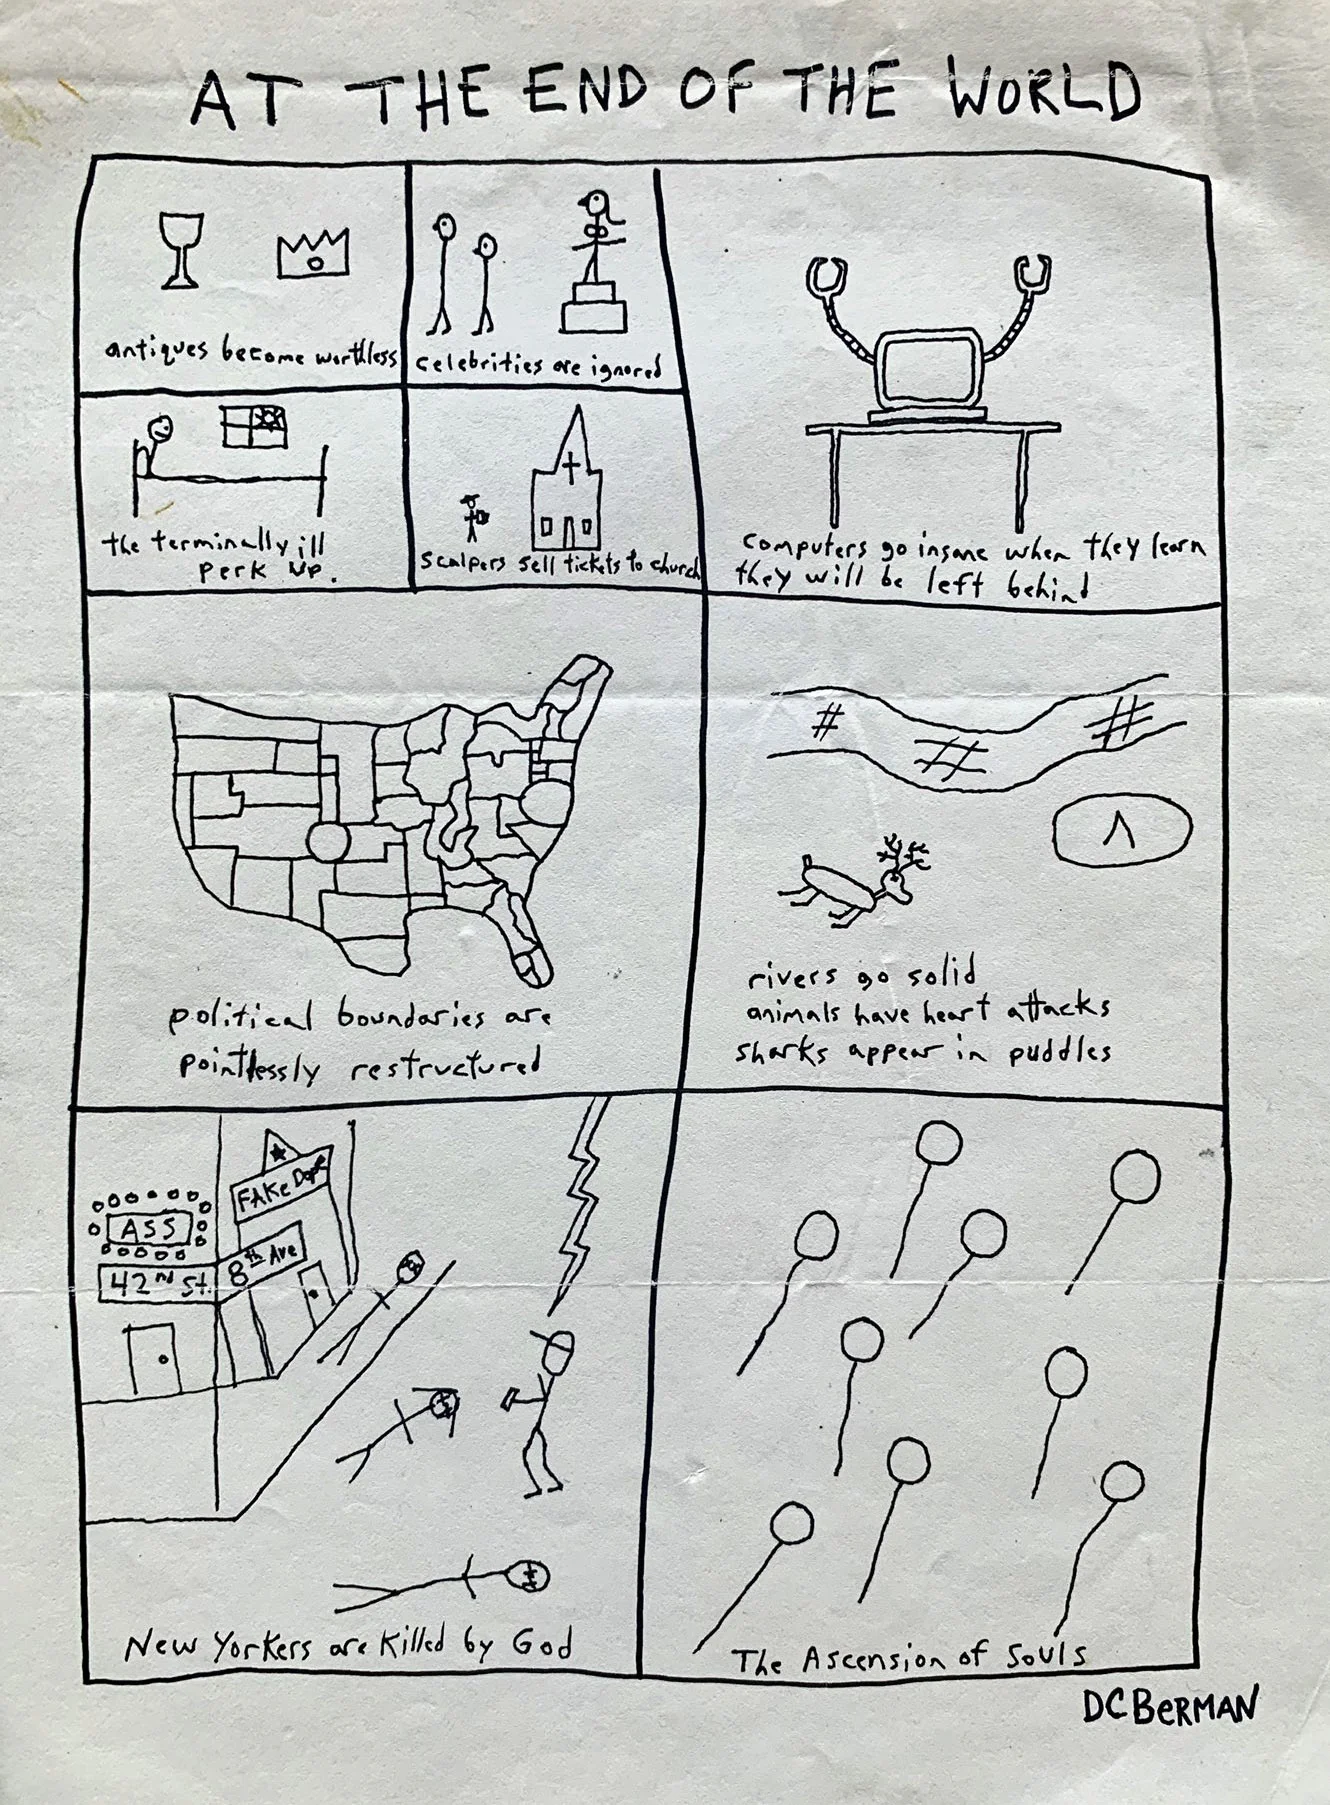 AT THE END OF THE WORLD
antiques become worthless
celebrities are ignored
the terminally ill
perk up.
scalpers sell tickets to church
computers go insane when they learn
they will be left behind
political boundaries are
pointlessly restructured
rivers go solid
animals have heart attacks
sharks appear in puddles
FAKE Dope
ASS
8th Ave
42nd St.
New Yorkers are killed by God
The Ascension of Souls
DCBERMAN